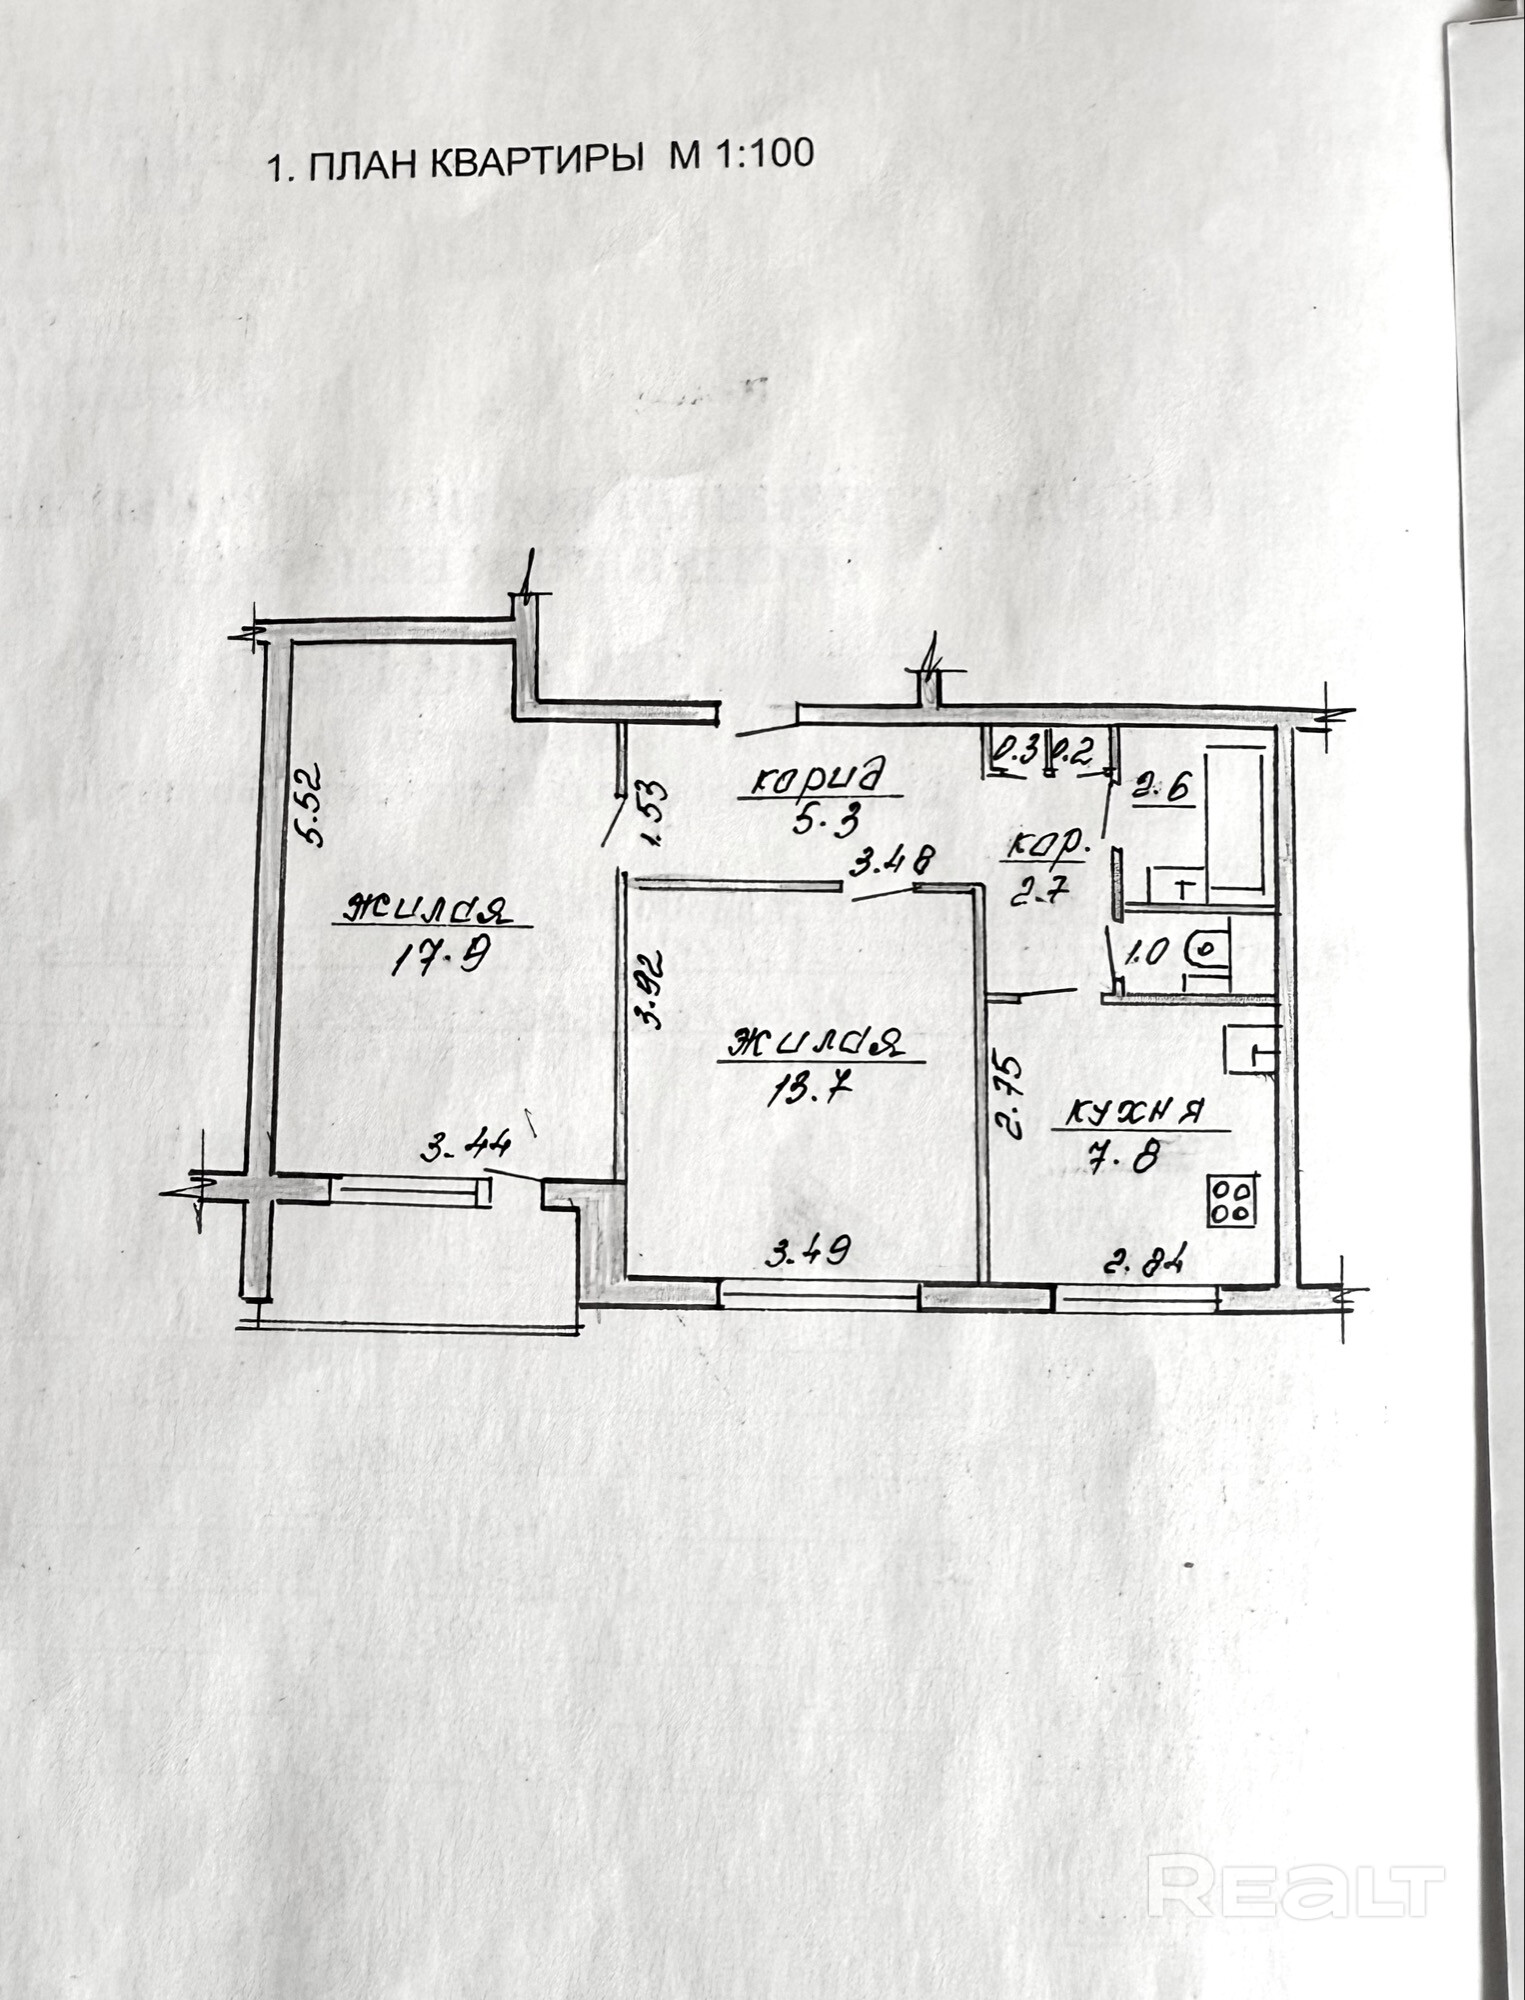 1. ПЛАН КВАРТИРЫ М 1:100
5.52
жилая
17.9
3.44
1.53
корид
5.3
3.48
0.3
0.2
2.6
кор.
2.7
1.0
3.92
жилая
13.7
3.49
2.75
кухня
7.8
2.84
REALT